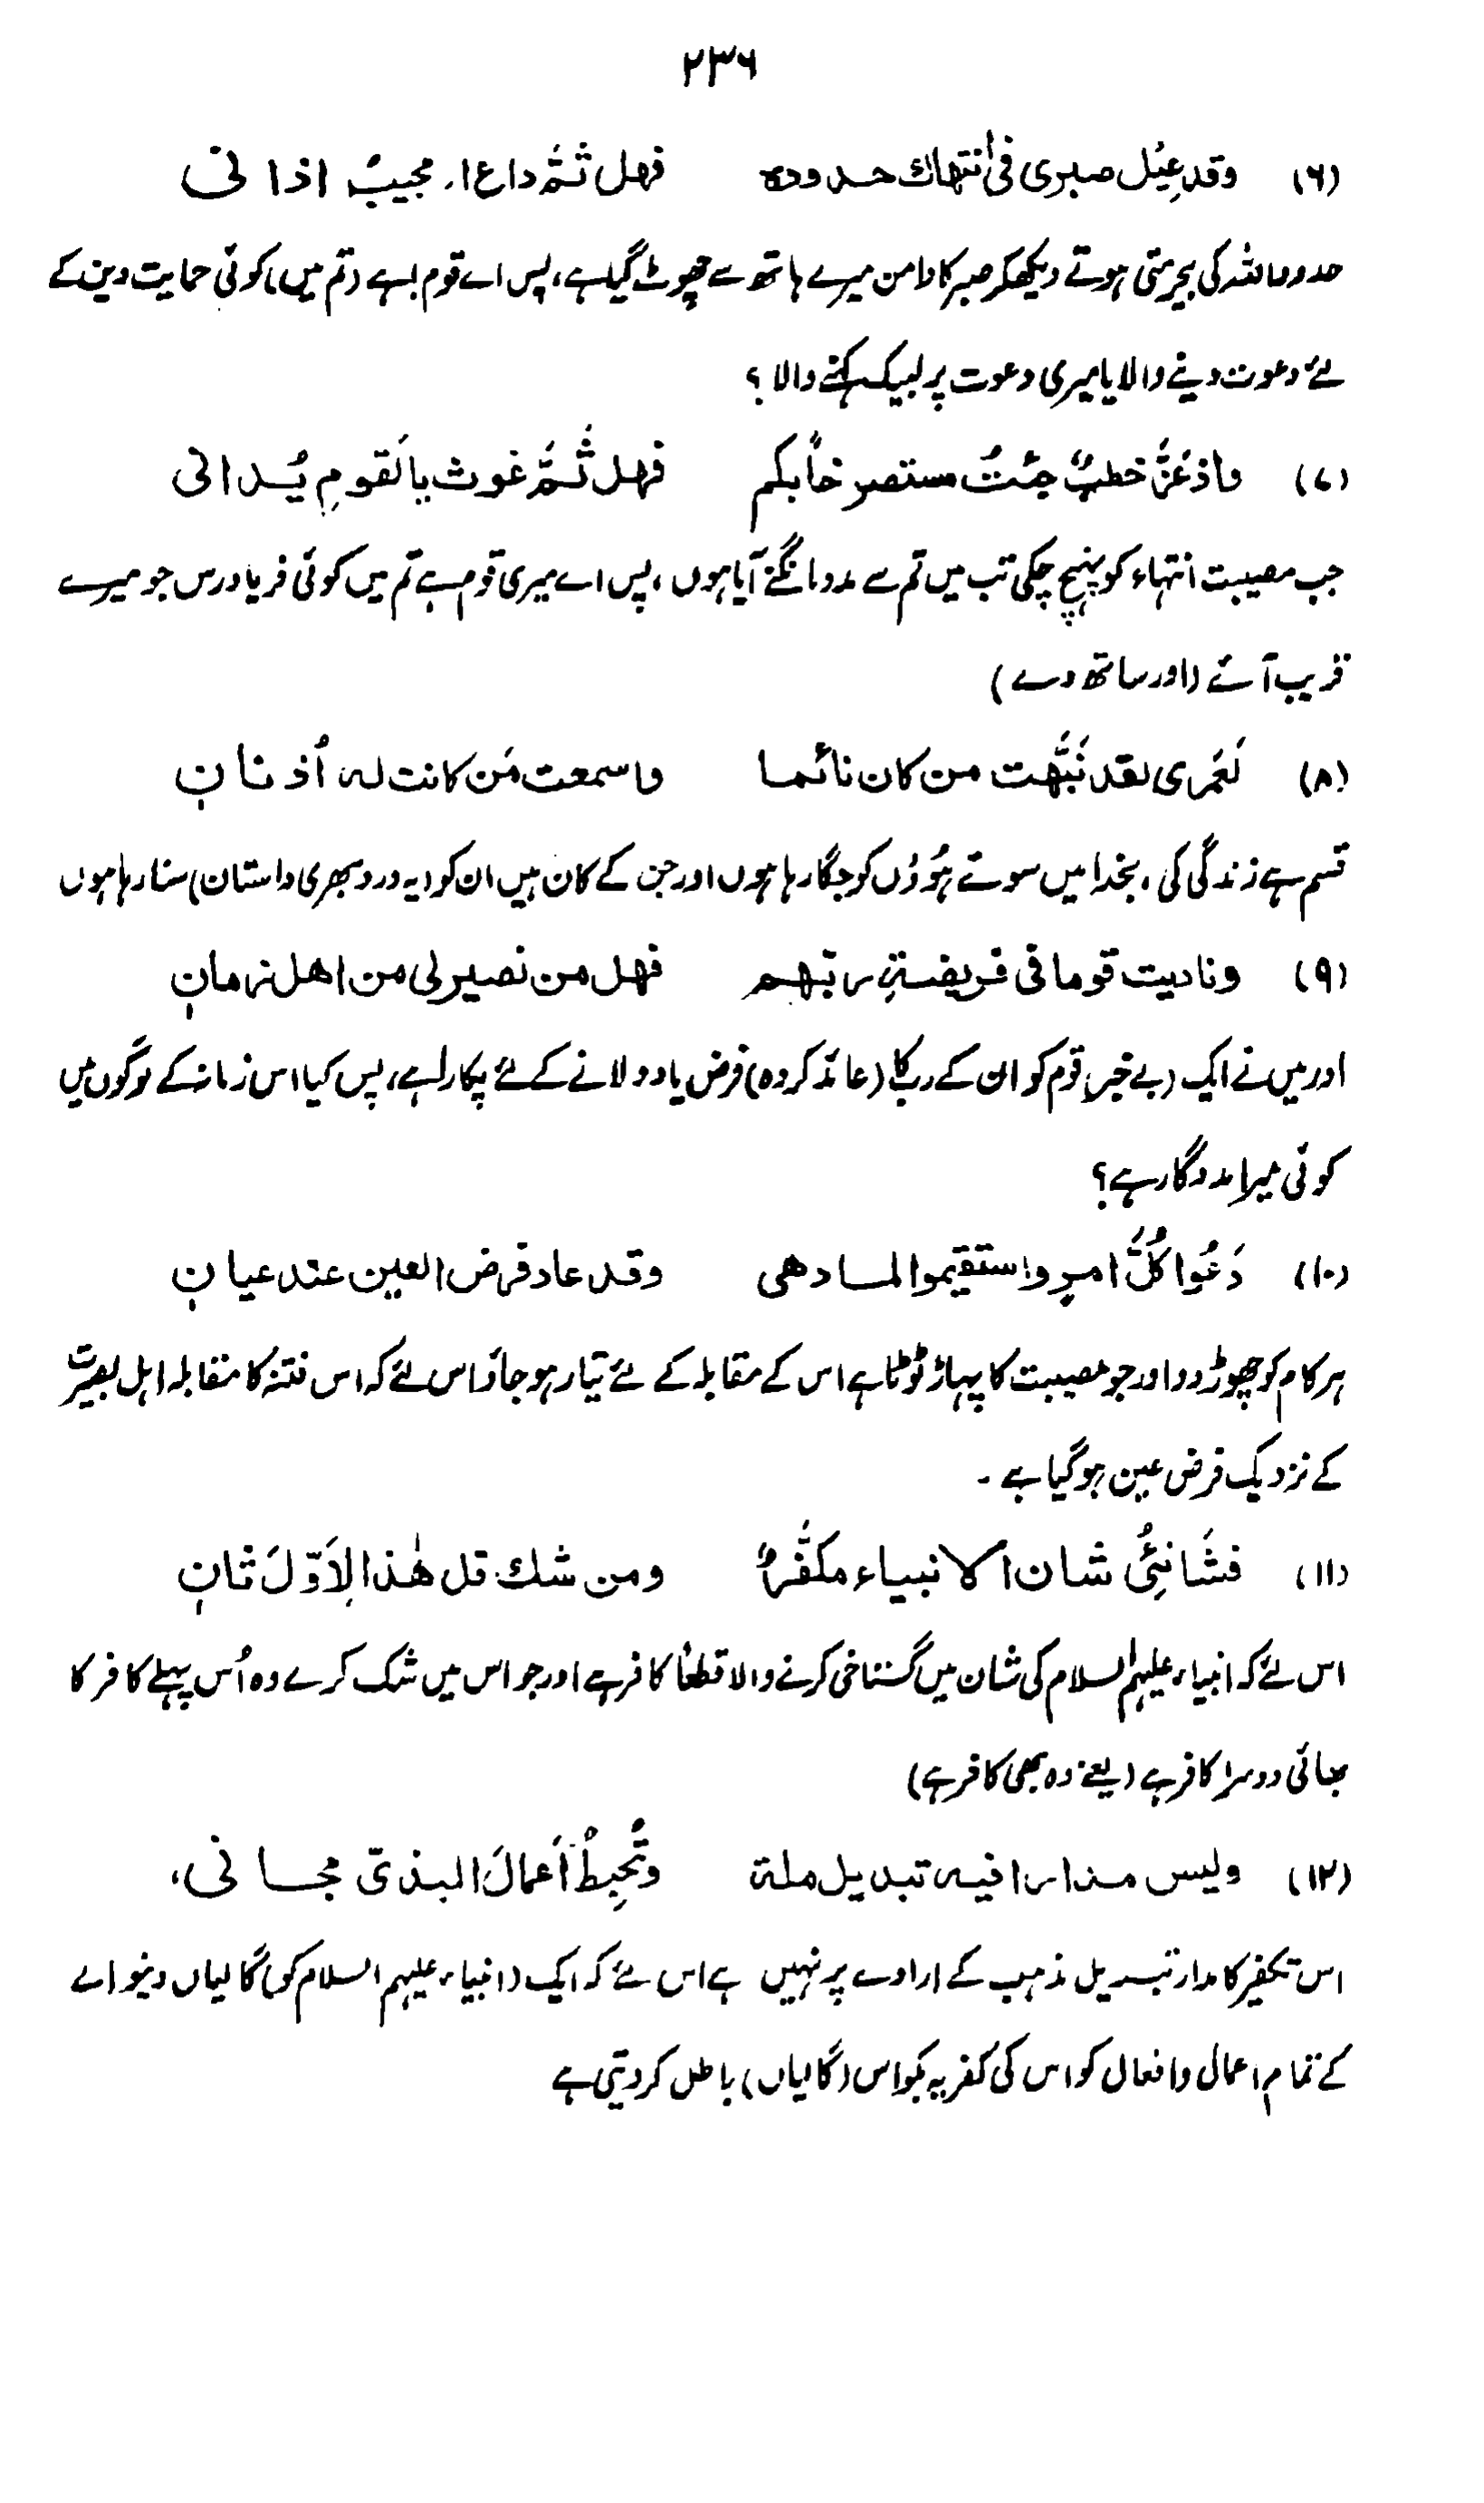 ۲۳۶
(۶) وقد عِیْل صبری فی انتهاك حدوده فهل ثَمَّ داع او مجیبٌ اذانی
حدود اللہ کی بیحرمتی ہوتے دیکھکر صبر کا دامن میرے ہاتھ سے چھوٹ گیا ہے، پس اے قوم ہے (تم میں) کوئی حمایت دین کے
لئے دعوت دینے والا یا میری دعوت پر لبیک کہنے والا؟
(۷) واذ عَزَّ خطبٌ جئتُ مستصرخاً بکم فهل ثَمَّ غوث یا لَقومِ یُدانی
جب مصیبت انتہاء کو پہنچ چکی تب میں تم سے مدد مانگنے آیا ہوں، پس اے میری قوم ہے تم میں کوئی فریاد رس جو میرے
قریب آئے (اور ساتھ دے)
(۸) لَعَمری لقد نَبَّهت من کان نائما واسمعت مَن کانت له اُذنانِ
قسم ہے زندگی کی، بخدا میں سوتے ہُوؤں کو جگا رہا ہوں اور جن کے کان ہیں ان کو (یہ درد بھری داستان) سنا رہا ہوں
(۹) ونادیت قوما فی فریضةِ ربهم فهل من نصیر لی من اهل زمانِ
اور میں نے ایک (بے خبر) قوم کو ان کے رب کا (عائد کردہ) فرض یاد دلانے کے لئے پکارا ہے، پس کیا اس زمانے کے لوگوں میں
کوئی میرا مددگار ہے؟
(۱۰) دَعُوا كُلَّ امرٍ واستقیموا لما دهی وقد عاد فرض العین عند عیانِ
ہر کام کو چھوڑ دو اور جو مصیبت کا پہاڑ ٹوٹا ہے اس کے مقابلہ کے لئے تیار ہو جاؤ اس لئے کہ اس فتنہ کا مقابلہ اہل بصیرت
کے نزدیک فرض عین ہو گیا ہے۔
(۱۱) فشَانِئُ شان الانبیاء مکَفَّرٌ ومن شك قل هٰذا لِاَوّلَ ثانِ
اس لئے کہ انبیاء علیہم السلام کی شان میں گستاخی کرنے والا قطعاً کافر ہے اور جو اس میں شک کرے وہ اُس پہلے کافر کا
بھائی دوسرا کافر ہے (یعنے وہ بھی کافر ہے)
(۱۲) ولیس مدارا فیه تبدیل ملة وتُحبِطُ اَعمالَ البذیّ مجانی،
اس تکفیر کا مدار تبدیل مذہب کے ارادے پر نہیں ہے اس لئے کہ ایک (انبیاء علیہم السلام کو) گالیاں دینے والے
کے تمام اعمال وافعال کو اس کی کفریہ بکواس (گالیاں) باطل کر دیتی ہے